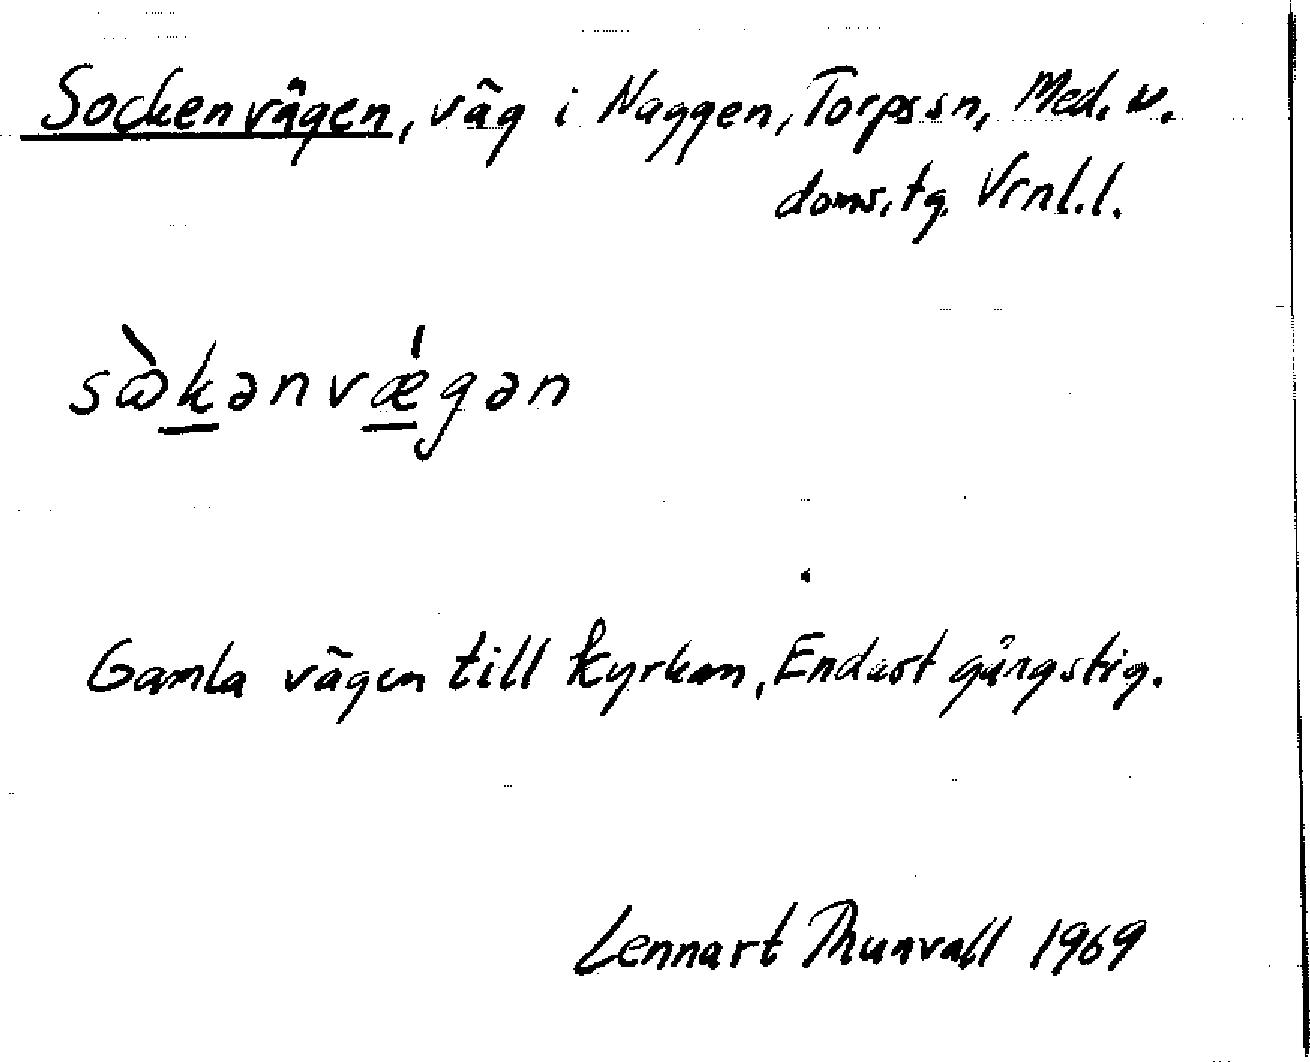 Sockenvägen, väg i Naggen, Torps sn, Med. v.
doms. tg. Vrnl.l.
sὼk̲ənvǽ̲gən
Gamla vägen till kyrkan, Endast gångstig.
Lennart Thunvall 1969